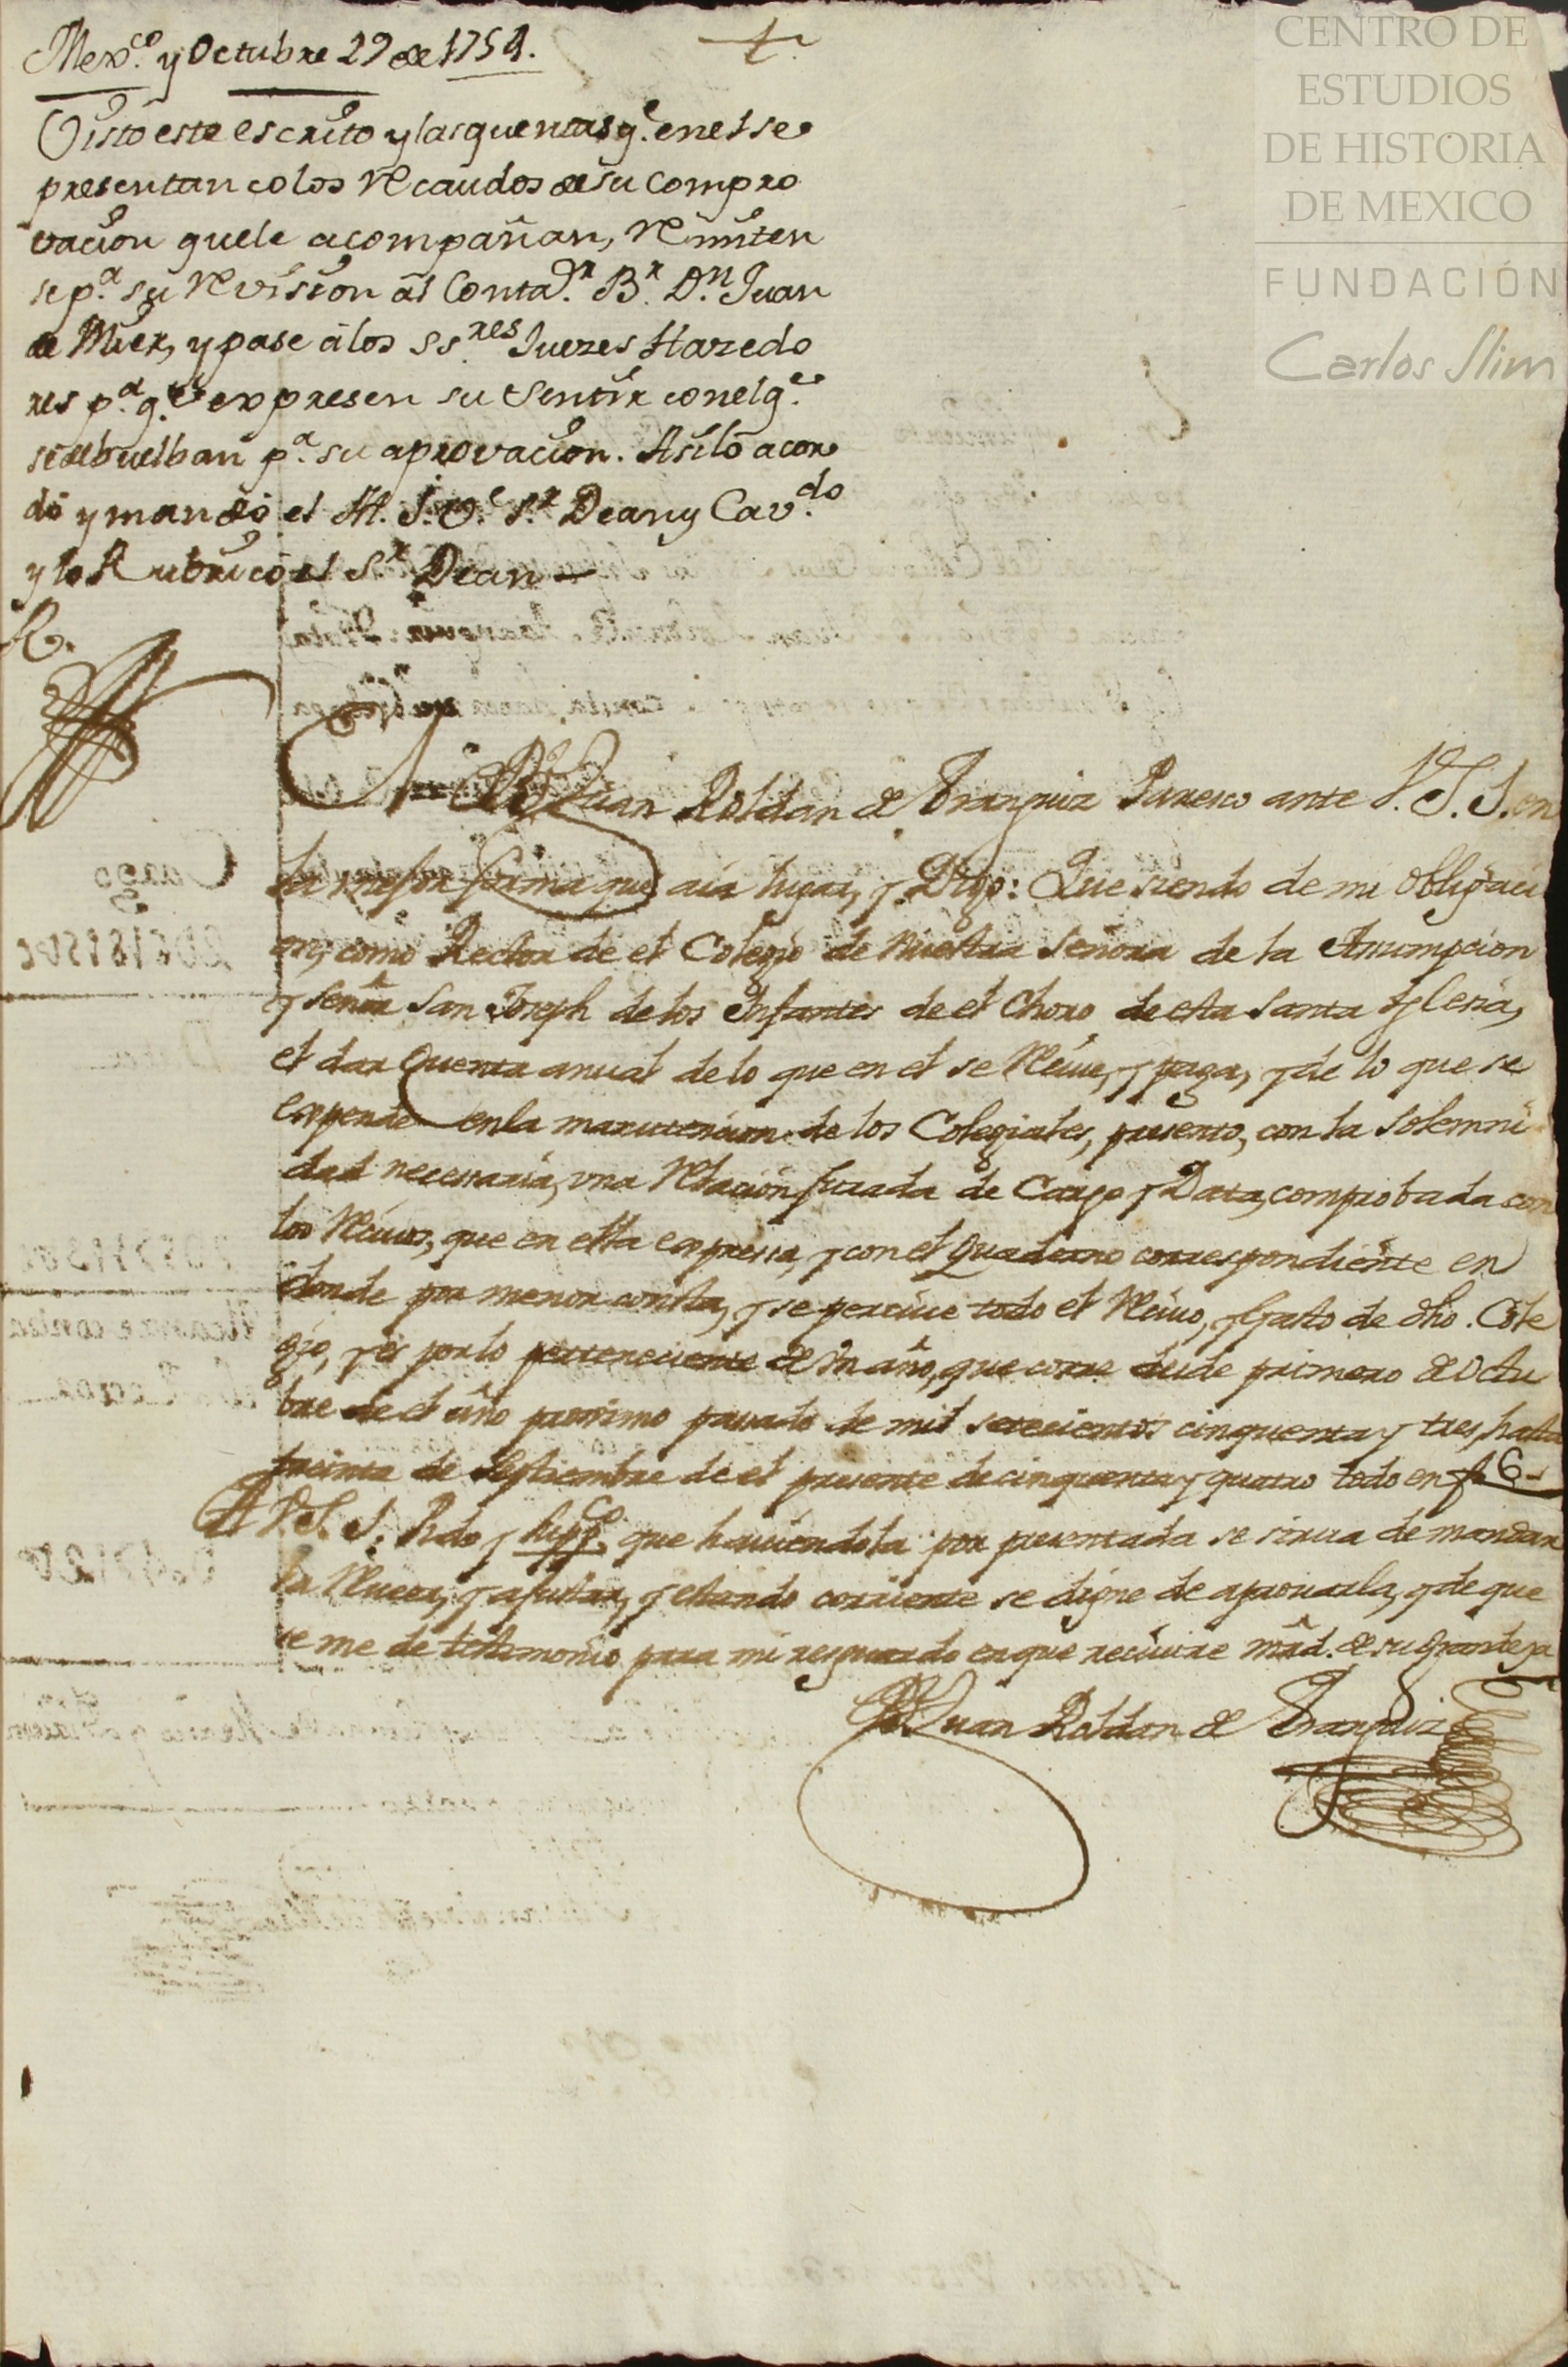 CENTRO DE
ESTUDIOS
DE HISTORIA
DE MEXICO
FUNDACIÓN
Carlos Slim
Mex.co y Octubre 29 de 1754.
Visto este escrito y las quentas q.e en el se
presentan co los Recaudos de su compro
vacion que le acompañan, Remiten
se p.a su Revision al Conta.or B.r D.n Juan
de Mier, y pase á los SS.res Juezes Hazedo
res p.a q.e expresen su sentir con el q.e
se debuelban p.a su aprovacion. Asi lo acor
dó y mandó el M. I. V.e S.r Dean y Cav.do
y lo Rubricó el S.r Dean
B.r Juan Roldan de Aranguiz Paresco ante V. S. S. en
la mejor forma que aia lugar, y Digo: Que siendo de mi obligaci
on, como Rector de el Colegio de Nuestra Señora de la Assumpcion
y Señor San Joseph de los Infantes de el Choro de esta Santa Iglesia,
el dar Quenta anual de lo que en el se Reciue, y paga, y de lo que se
expende en la manutencion de los Colegiales, presento, con la solemni
dad necessaria, vna Relacion jurada de Cargo y Data, comprobada con
los Reciuos, que en ella expressa, y con el Quaderno correspondiente en
donde por menor consta, y se perciue todo el Reciuo, y Gasto de dho. Cole
gio, y es por lo perteneciente de vn año, que corre desde primero de Octu
bre de el año proximo passado de mil setecientos cinquenta y tres, hasta
treinta de Septiembre de el presente de cinquenta y quatro todo en f. 6
A V. S. S. Pido y supp.co que hauiendola por presentada se sirua de mandar
la Rueer, y ajustar, y estando corriente se digne de aprouarla, y de que
se me de testimonio para mi resguardo en que reciuire mrd. de su grandeza
B.r Juan Roldan de Aranguiz